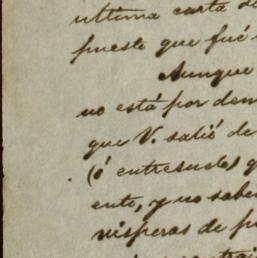 ultima carta de
pueste que fué
Aunque
no está por dem
que V. salió de
(ó entresuelo) q
ente, y no saber
visperas de p